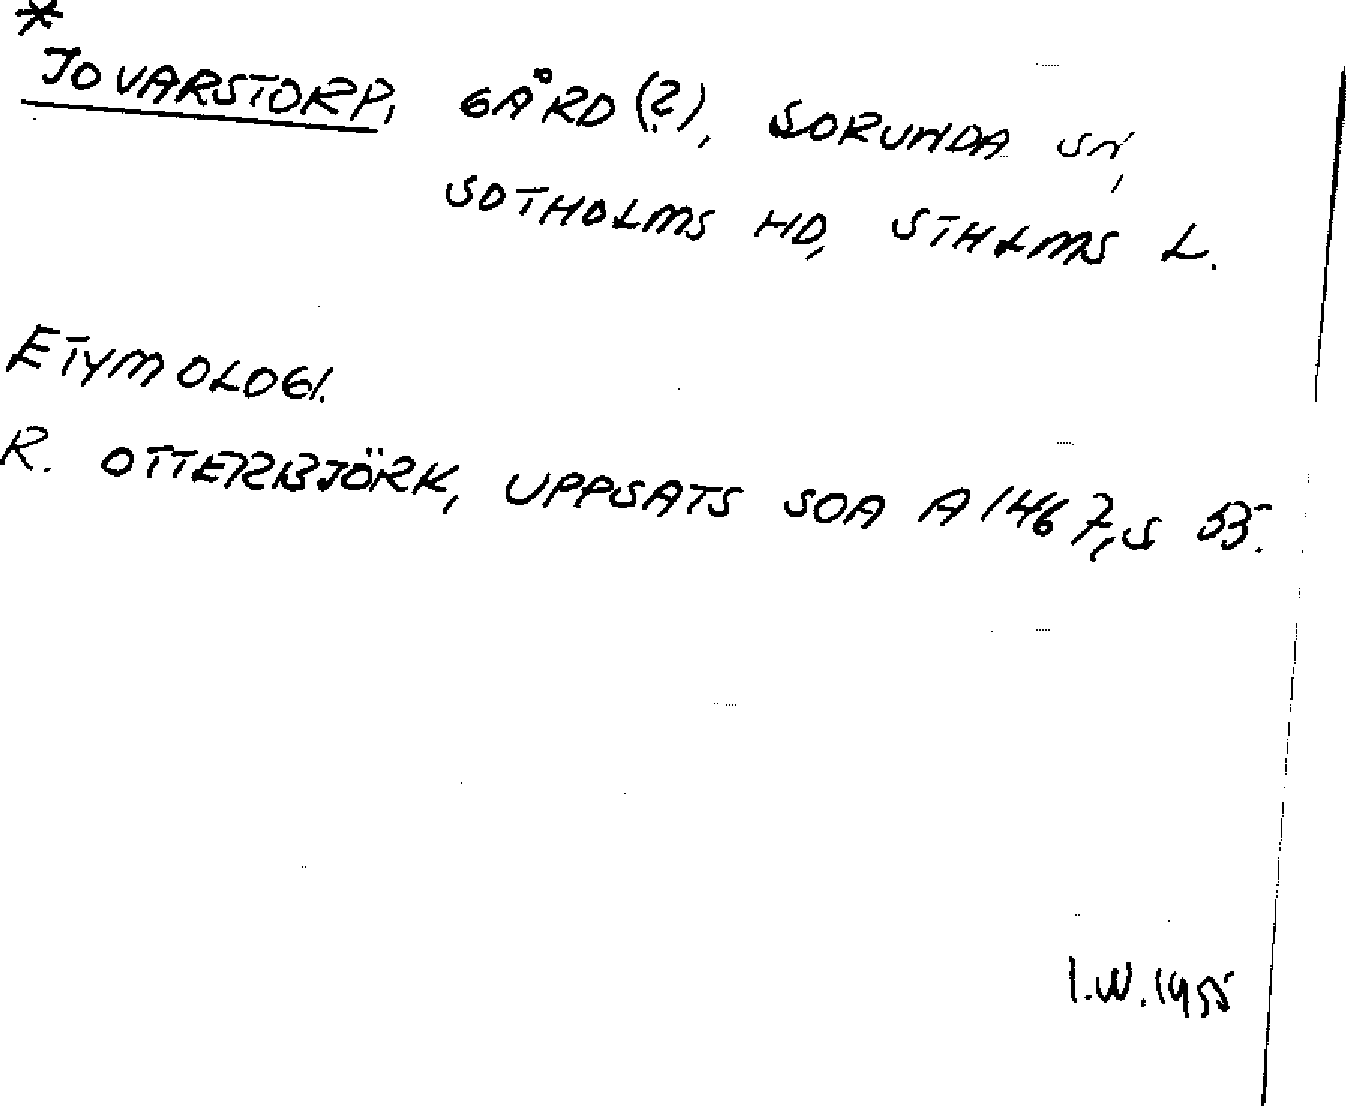 *
JOVARSTORP, GÅRD (?), SORUNDA SN,
SOTHOLMS HD, STHLMS L.
ETYMOLOGI.
R. OTTERBJÖRK, UPPSATS SOA A 1467, S 53.
I.W. 1955